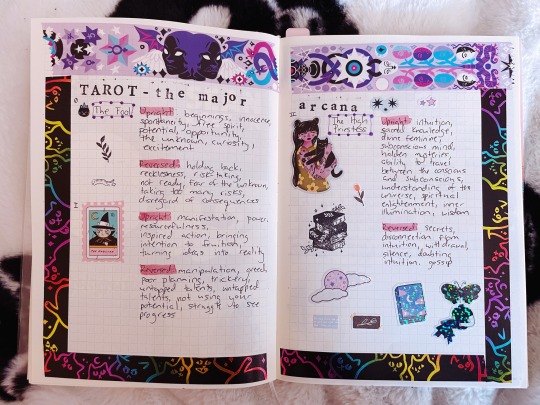 TAROT - the major
0
The Fool
Upright: beginnings, innocence,
spontaneity, free spirit,
potential, opportunity,
the unknown, curiosity,
excitement
Reversed: holding back,
recklessness, risk taking,
not ready, fear of the unknown,
taking too many risks,
disregard of consequences
I
Upright: manifestation, power,
resourcefulness,
inspired action, bringing
intention to fruition,
turning ideas into reality
Reversed: manipulation, greed,
poor planning, trickery,
untapped talents, untapped
talents, not using your
potential, struggle to see
progress
arcana
II
The High
Priestess
Upright: intuition,
sacred knowledge,
divine feminine,
subconscious mind,
hidden mysteries,
ability to travel
between the conscious
and subconscious,
understanding of the
universe, spiritual
enlightenment, inner
illumination, wisdom
Reversed: secrets,
disconnection from
intuition, withdrawal,
silence, doubting
intuition, gossip